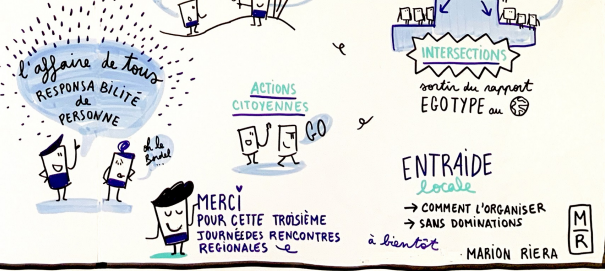 l'affaire de tous
RESPONSABILITÉ
de
PERSONNE
oh le
Bordel
...
ACTIONS
CITOYENNES
GO
INTERSECTIONS
sortir du rapport
EGOTYPE au
ENTRAIDE
locale
→ COMMENT L'ORGANISER
→ SANS DOMINATIONS
MERCI
POUR CETTE TROISIÈME
JOURNÉE DES RENCONTRES
REGIONALES
à bientôt
MARION RIERA
M
R